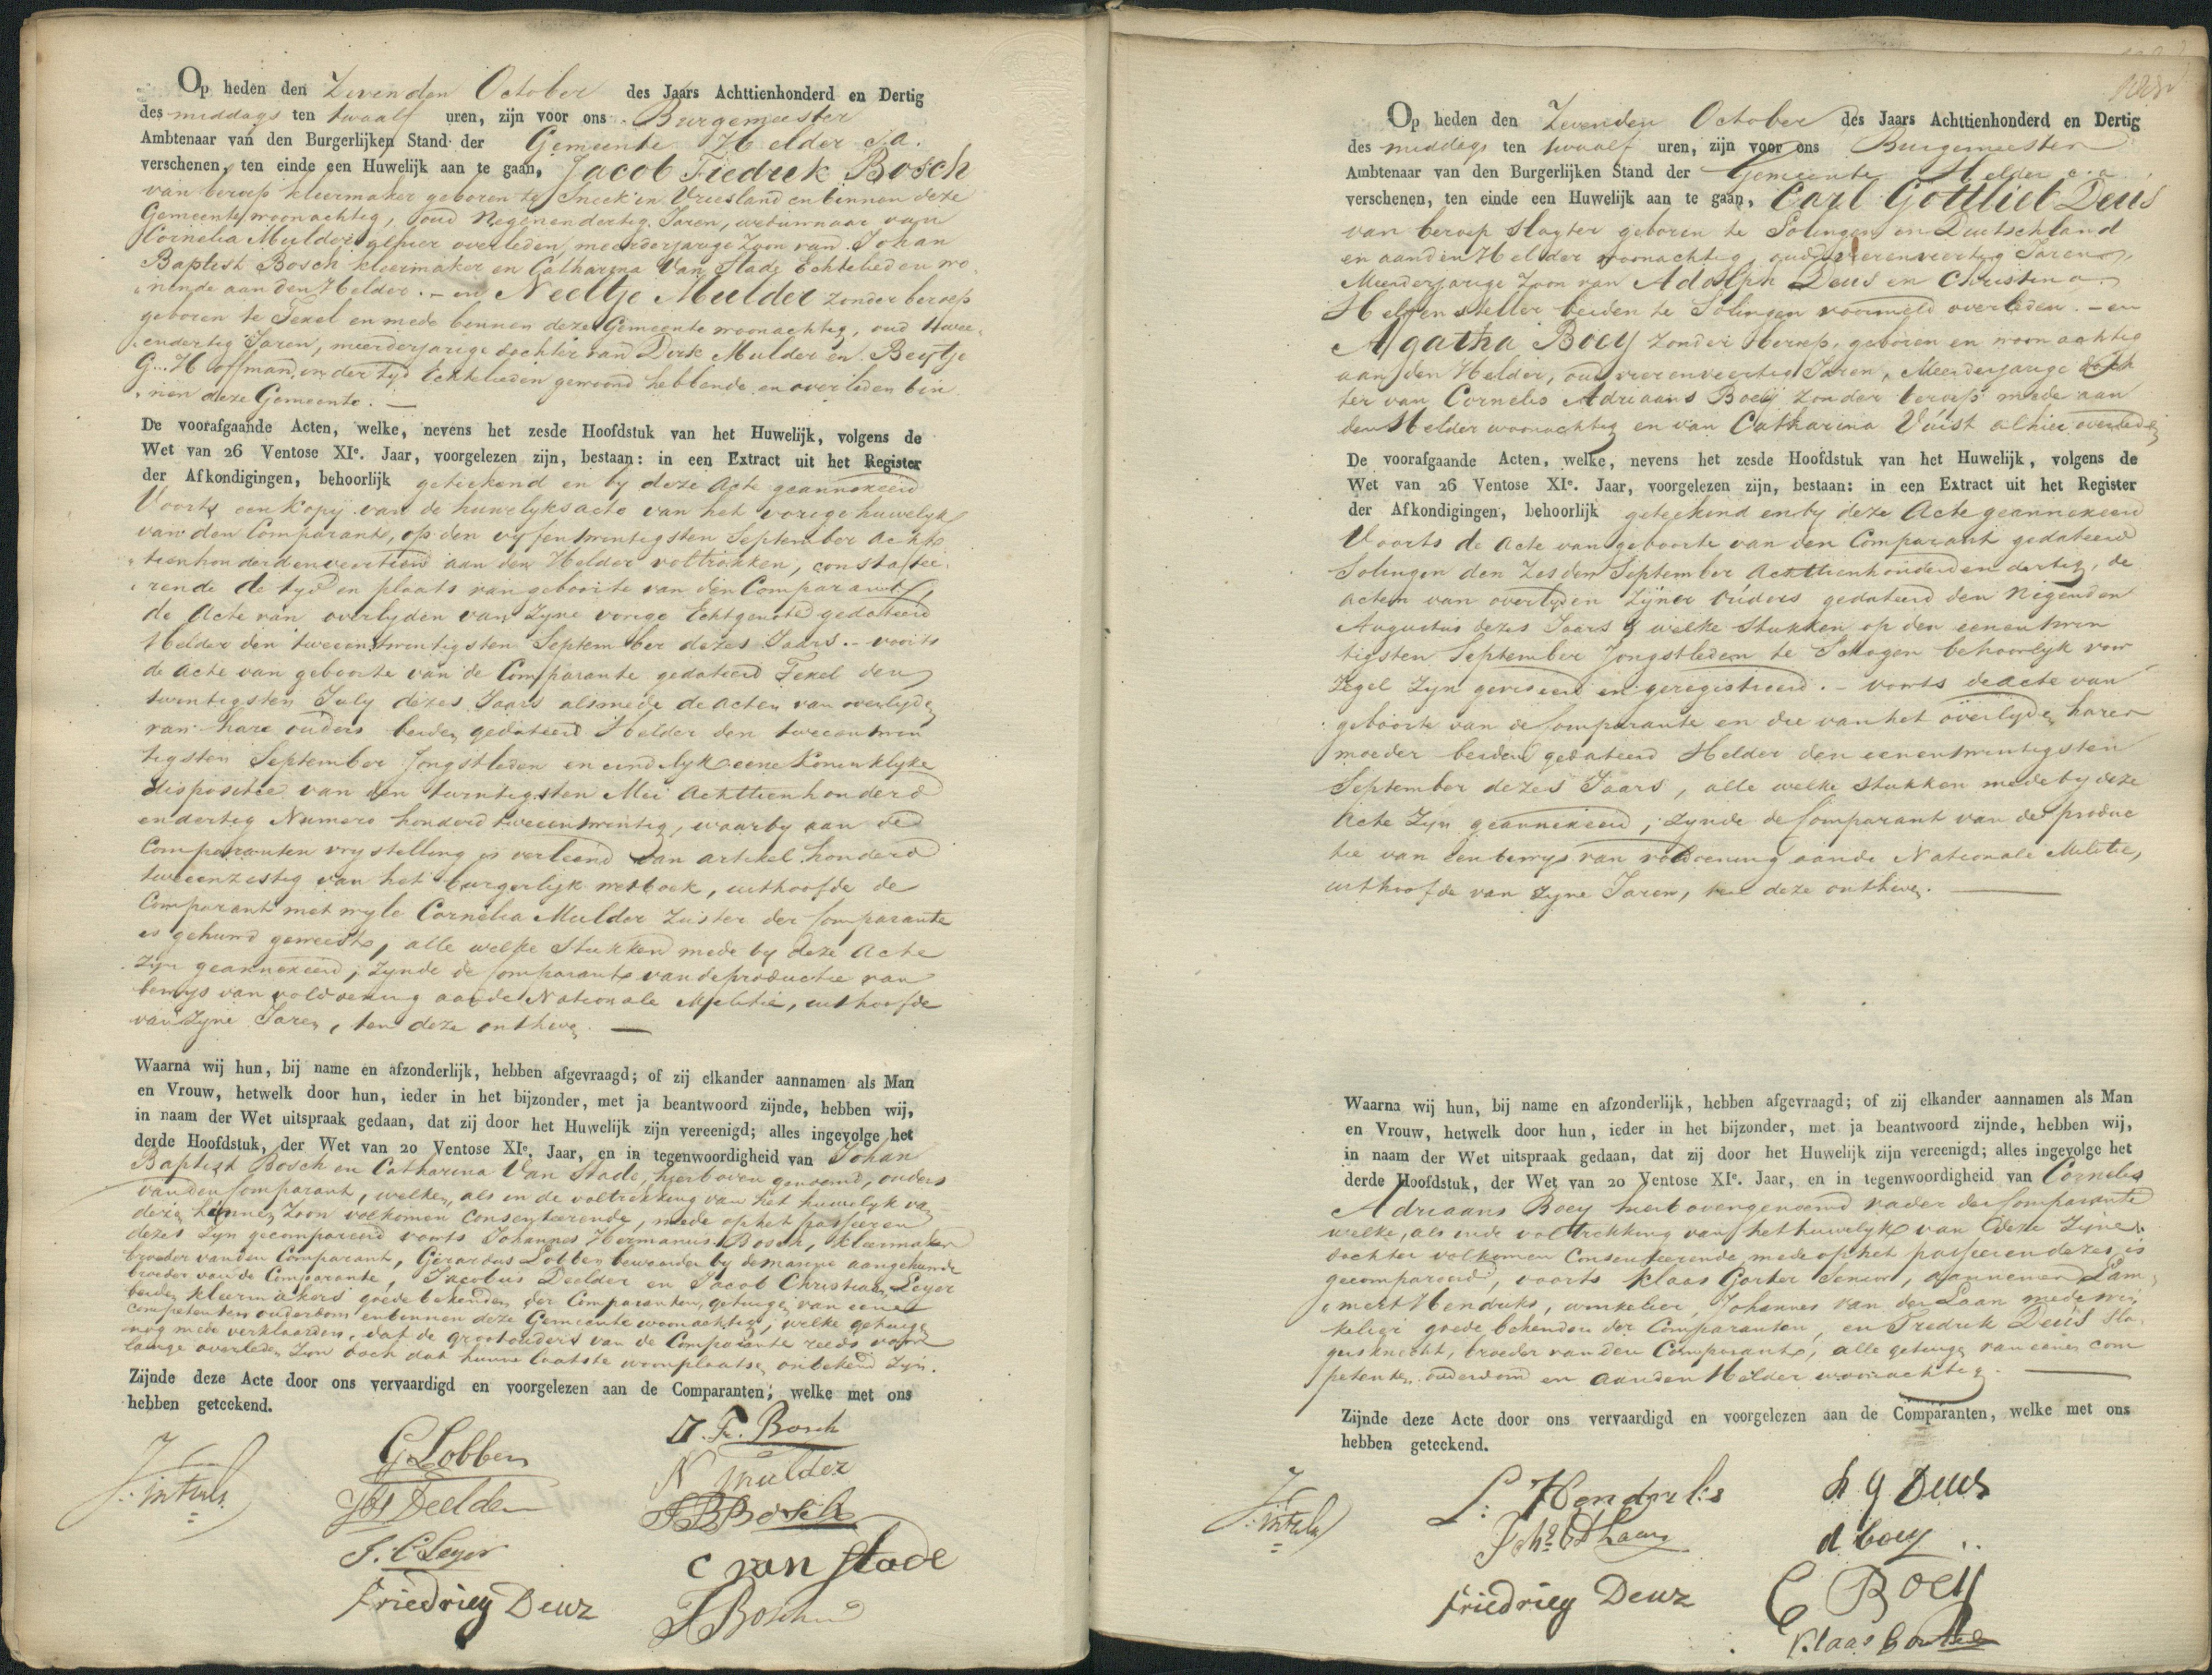 Op heden den Zevenden October des Jaars Achttienhonderd en Dertig
des middags ten twaalf uren, zijn voor ons Burgemeester
Ambtenaar van den Burgerlijken Stand der Gemeente Helder c.a.
verschenen, ten einde een Huwelijk aan te gaan, Jacob Fredrik Bosch
van beroep kleermaker geboren te Sneek in Vriesland en binnen deze
Gemeente woonachtig, oud Negenendertig Jaren, weduwnaar van
Cornelia Mulder alhier overleden, meerderjarige Zoon van Johan
Baptist Bosch kleermaker en Catharina Van Stade Echtelieden wo-
nende aan den Helder. - en Neeltje Mulder zonder beroep
geboren te Texel en mede binnen deze Gemeente woonachtig, oud twee-
endertig Jaren, meerderjarige dochter van Dirk Mulder en Beytje
G... Hoffman, in der tyd Echtelieden gewoond hebbende en overleden bin
nen deze Gemeente. -
De voorafgaande Acten, welke, nevens het zesde Hoofdstuk van het Huwelijk, volgens de
Wet van 26 Ventose XIe. Jaar, voorgelezen zijn, bestaan: in een Extract uit het Register
der Afkondigingen, behoorlijk geteekend en by deze Acte geannexeerd
Voorts een kopij van de huwelyksacte van het vorige huwelyk
van den Comparant, op den vyfentwintigsten September acht
tienhonderdenveertien aan den Helder voltrokken, constatee-
rende de tyd en plaats van geboorte van den Comparant,
de Acte van overlyden van zyne vorige Echtgenote gedateerd
Helder den tweeentwintigsten September dezes Jaars. - voorts
de acte van geboorte van de Comparante gedateerd Texel den
twintigsten July dezes Jaars alsmede de acten van overlyden
van hare ouders beiden gedateerd Helder den tweeentwin
tigsten September Jongstleden en eindelyk eene Koninklyke
dispositie van den twintigsten Mei Achttienhonderd
endertig Numero honderd tweeentwintig, waarby aan de
Comparanten vrystelling is verleend van artikel honderd
tweeenzestig van het burgerlijk wetboek, uithoofde de
Comparant met wyle Cornelia Mulder zuster der Comparante
is gehuwd geweest, alle welke stukken mede by deze Acte
zyn geannexeerd; zynde de Comparant van de productie van
bewys van voldoening aan de Nationale Militie, uithoofde
van zyne Jaren, ten deze ontheven. -
Waarna wij hun, bij name en afzonderlijk, hebben afgevraagd; of zij elkander aannamen als Man
en Vrouw, hetwelk door hun, ieder in het bijzonder, met ja beantwoord zijnde, hebben wij,
in naam der Wet uitspraak gedaan, dat zij door het Huwelijk zijn vereenigd; alles ingevolge het
derde Hoofdstuk, der Wet van 20 Ventose XIe. Jaar, en in tegenwoordigheid van Johan
Baptist Bosch en Catharina Van Stade, hierboven genoemd, ouders
van den Comparant, welke, als in de voltrekking van het huwelyk van
dezen hunnen Zoon volkomen Consenteerende, mede op het passeeren
dezes zyn gecompareerd voorts Johannes Hermanus Bosch, kleermaker
broeder van den Comparant, Gerardus Lobben bewaarder by de marine aangehuwde
broeder van de Comparante, Jacobus Deelder en Jacob Christiaan Leyer
beiden kleermakers goede bekenden der Comparanten, getuigen van eenen
competenten ouderdom en binnen deze Gemeente woonachtig, welke getuigen
nog mede verklaarden, dat de grootouders van de Comparante reeds voor
lange overleden zyn doch dat hunne laatste woonplaatsen onbekend zyn.
Zijnde deze Acte door ons vervaardigd en voorgelezen aan de Comparanten; welke met ons
hebben geteekend.
G Lobben
J. F. Bosch
N Mulder
Jbs Deelder
J B Bosch
J. C Leyer
C van Stade
Friedrieg Deuz
J H Bosch
Op heden den Zevenden October des Jaars Achttienhonderd en Dertig
des middags ten twaalf uren, zijn voor ons Burgemeester
Ambtenaar van den Burgerlijken Stand der Gemeente Helder c.a.
verschenen, ten einde een Huwelijk aan te gaan, Carl Gottlieb Deus
van beroep slagter geboren te Solingen in Duitschland
en aan den Helder woonachtig, oud vierenveertig Jaren,
Meerderjarige Zoon van Adolph Deus en Christina
Helfensteller beiden te Solingen voormeld overleden. - en
Agatha Boey zonder beroep, geboren en woonachtig
aan den Helder, oud vierenveertig Jaren, Meerderjarige doch
ter van Cornelis Adriaans Boeij zonder beroep mede aan
den Helder woonachtig en van Catharina Vuist alhier overleden
De voorafgaande Acten, welke, nevens het zesde Hoofdstuk van het Huwelijk, volgens de
Wet van 26 Ventose XIe. Jaar, voorgelezen zijn, bestaan: in een Extract uit het Register
der Afkondigingen, behoorlijk geteekend en by deze Acte geannexeerd
Voorts de acte van geboorte van den Comparant gedateerd
Solingen den zesden September Achttienhonderd en dertig, de
acten van overlyden zijner ouders gedateerd den Negenden
Augustus dezes Jaars welke stukken op den eenentwin
tigsten September Jongstleden te Schagen behoorlyk voor
zegel zyn geviseerd en geregistreerd. - voorts de acte van
geboorte van de Comparante en die van het overlyden harer
moeder beiden gedateerd Helder den eenentwintigsten
September dezes Jaars, alle welke stukken mede by deze
Acte zyn geannexeerd; zynde de Comparant van de produc
tie van een bewys van voldoening aan de Nationale Militie,
uithoofde van zyne Jaren, ten deze ontheven. -
Waarna wij hun, bij name en afzonderlijk, hebben afgevraagd; of zij elkander aannamen als Man
en Vrouw, hetwelk door hun, ieder in het bijzonder, met ja beantwoord zijnde, hebben wij,
in naam der Wet uitspraak gedaan, dat zij door het Huwelijk zijn vereenigd; alles ingevolge het
derde Hoofdstuk, der Wet van 20 Ventose XIe. Jaar, en in tegenwoordigheid van Cornelis
Adriaans Boey hierbovengenoemd vader der Comparante
welke, als in de voltrekking van het huwelyk van deze zyne
dochter volkomen Consenteerende mede op het passeeren dezes is
gecompareerd, voorts Klaas Gorter Senior, aannemer Lam-
mert Hendriks, winkelier, Johannes van der Laan mede win
kelier goede bekenden der Comparanten, en Fredrik Deus sla-
gersknecht, broeder van den Comparant, alle getuigen van eenen com
petenten ouderdom en aan den Helder woonachtig. -
Zijnde deze Acte door ons vervaardigd en voorgelezen aan de Comparanten, welke met ons
hebben geteekend.
L: Hendriks
Deus
Boey
Friedrieg Deuz
C Boey
Klaas Gorter